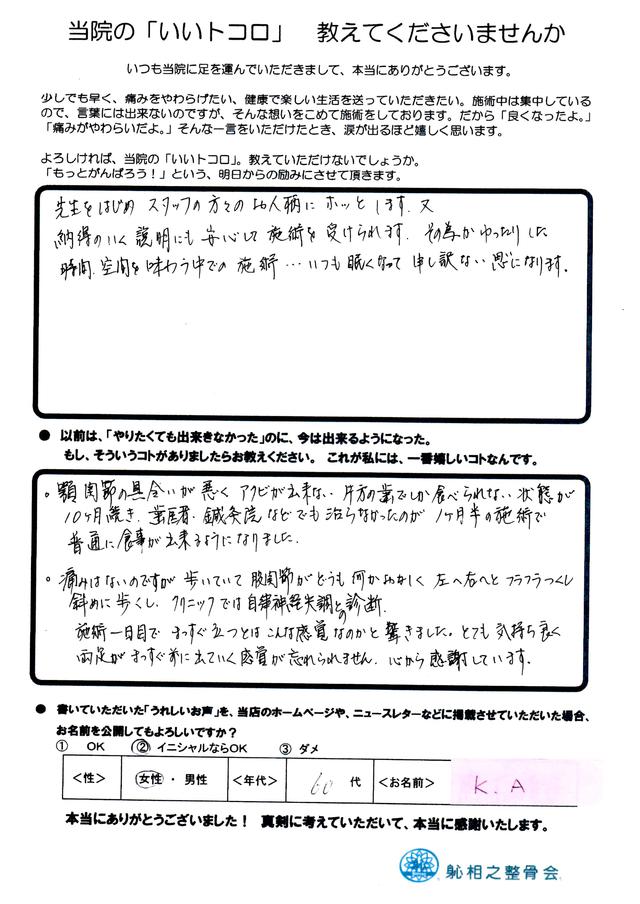 当院の「いいトコロ」　教えてくださいませんか
いつも当院に足を運んでいただきまして、本当にありがとうございます。
少しでも早く、痛みをやわらげたい、健康で楽しい生活を送っていただきたい。施術中は集中している
ので、言葉には出来ないのですが、そんな想いをこめて施術をしております。だから「良くなったよ。」
「痛みがやわらいだよ。」そんな一言をいただけたとき、涙が出るほど嬉しく思います。
よろしければ、当院の「いいトコロ」。教えていただけないでしょうか。
「もっとがんばろう！」という、明日からの励みにさせて頂きます。
先生をはじめ スタッフの方々のお人柄に ホッと します. 又
納得のいく 説明にも 安心して 施術を 受けられます. その為か ゆったり した
時間. 空間を 味わう中での 施術 … いつも 眠くなって 申し訳ない 思いになります.
● 以前は、「やりたくても出来きなかった」のに、今は出来るようになった。
もし、そういうコトがありましたらお教えください。 これが私には、一番嬉しいコトなんです。
○ 顎関節の具合いが悪く アクビが出来ない 片方の歯でしか食べられない 状態が
10ヶ月続き. 歯医者. 鍼灸院 などでも 治らなかったのが 1ヶ月半の施術で
普通に食事が出来るようになりました.
○ 痛みはないのですが 歩いていて 股関節がどうも 何かおかしく 左へ右へと フラフラっくし
斜めに 歩くし. クリニックでは 自律神経失調との診断.
施術一日目で まっすぐ立つとは こんな感覚なのかと 驚きました. とても 気持ち良く
両足が まっすぐ前に 出ていく 感覚が 忘れられません. 心から 感謝しています.
● 書いていただいた「うれしいお声」を、当店のホームページや、ニュースレターなどに掲載させていただいた場合、
お名前を公開してもよろしいですか？
① OK ② イニシャルならOK ③ ダメ
＜性＞ 女性 ・ 男性 ＜年代＞ 60 代 ＜お名前＞ K. A
本当にありがとうございました！ 真剣に考えていただいて、本当に感謝いたします。
躰相之整骨会